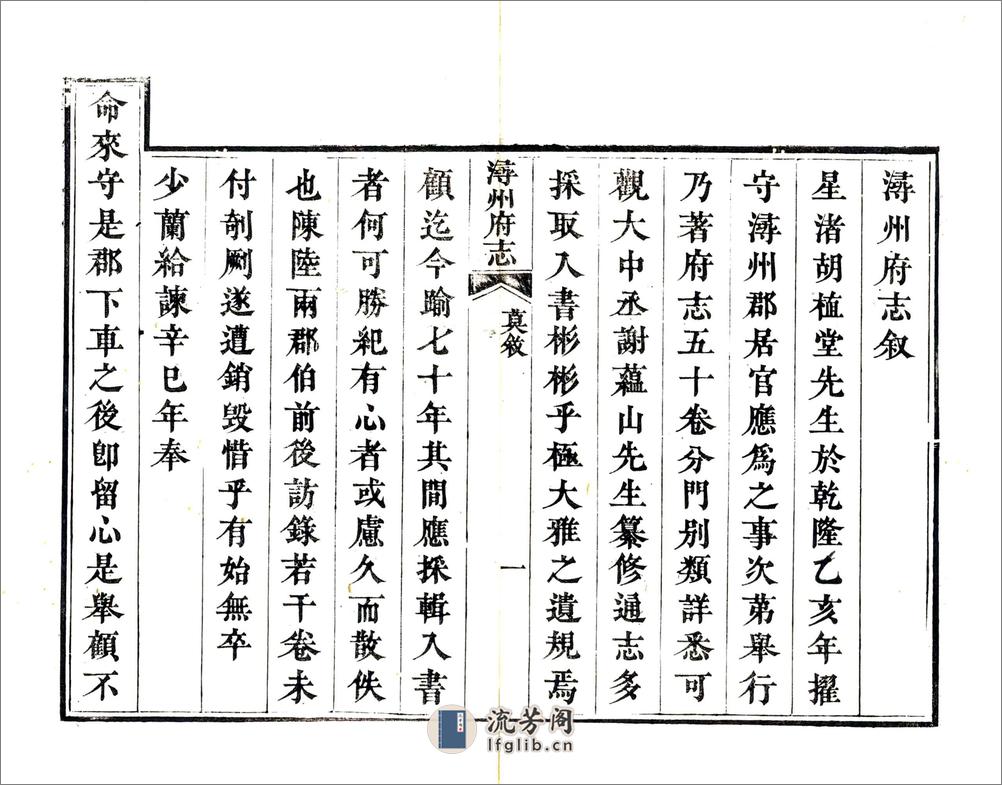 潯州府志叙
星渚胡植堂先生於乾隆乙亥年擢
守潯州郡居官應為之事次第舉行
乃著府志五十卷分門別類詳悉可
觀大中丞謝蘊山先生纂修通志多
採取入書彬彬乎極大雅之遺規焉
潯州府志
莫敘
一
顧迄今踰七十年其間應採輯入書
者何可勝紀有心者或慮久而散佚
也陳陸兩郡伯前後訪錄若干卷未
付剞劂遂遭銷毀惜乎有始無卒
少蘭給諫辛巳年奉
命來守是郡下車之後卽留心是舉顧不
流芳阁
lfglib.cn